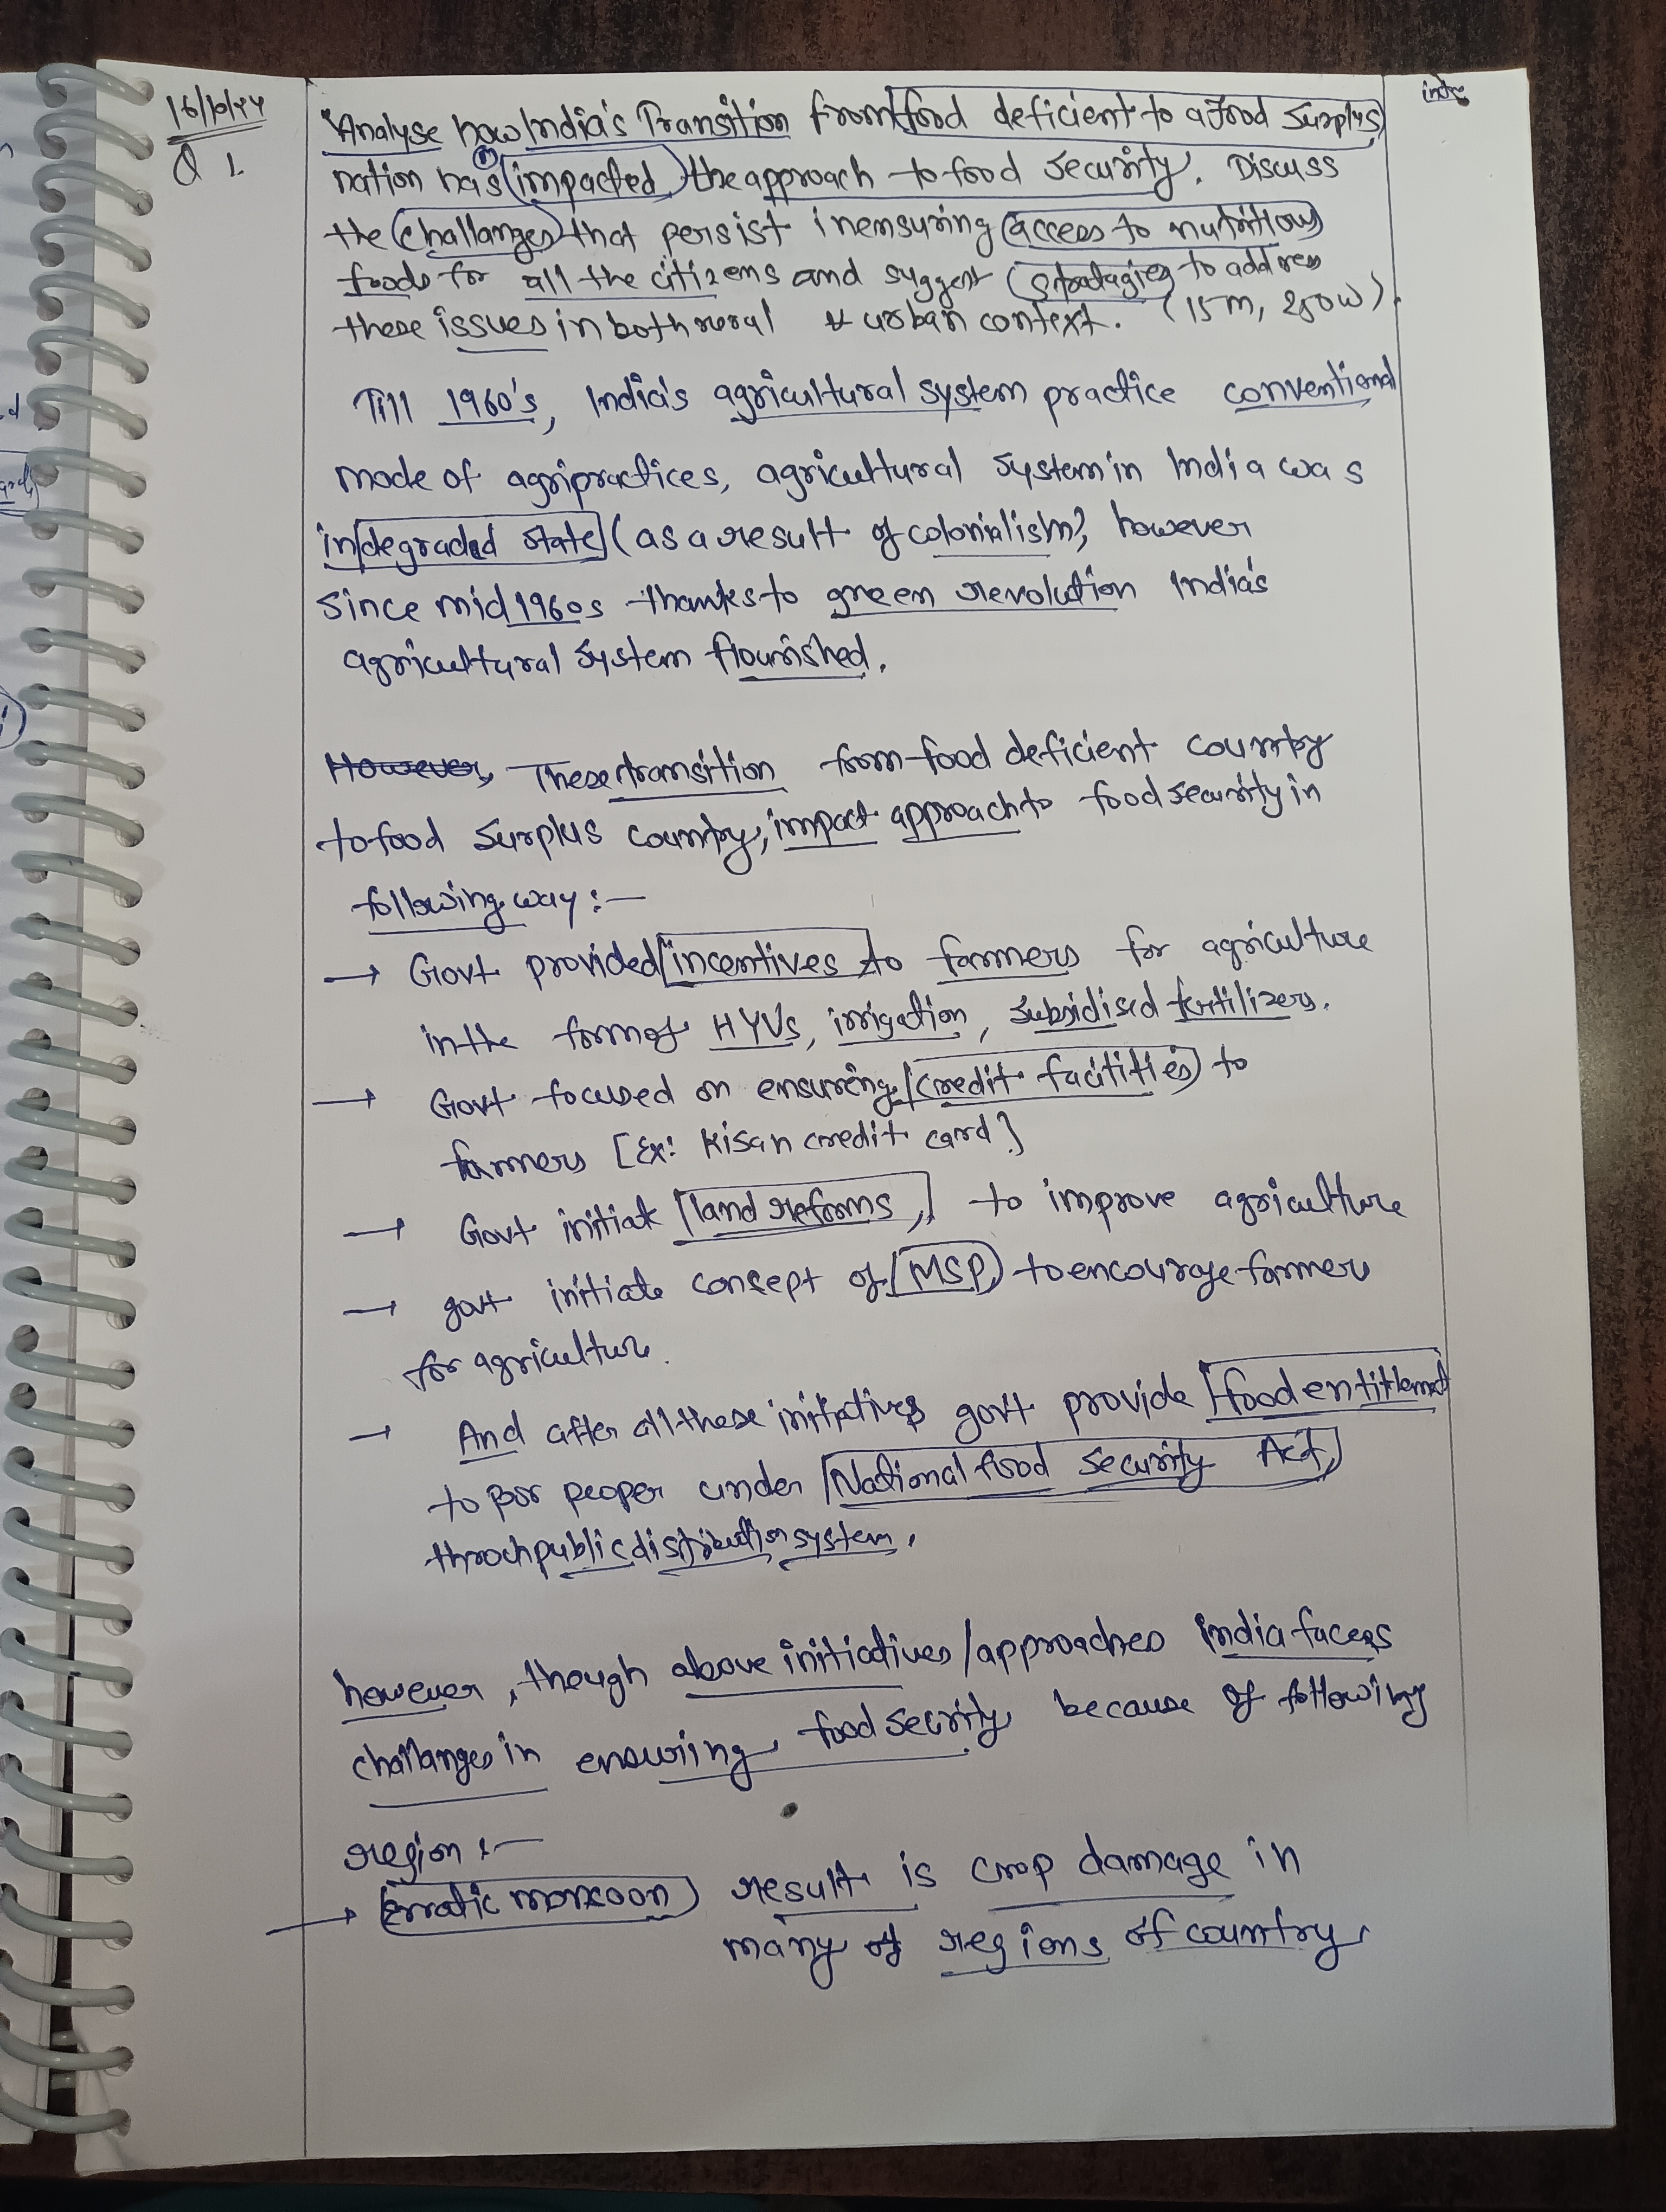 16/10/24
Q 1.
Analyse how India's Transition from food deficient to a food surplus
nation has impacted the approach to food security. Discuss
the challanges that persist in ensuring access to nutritious
foods for all the citizens and suggest stratagies to address
these issues in both rural & urban context. (15 m, 250 w).
Till 1960's, India's agricultural system practice conventional
mode of agripractices, agricultural system in India was
in degraded state (as a result of colonialism), however
since mid 1960s thanks to green revolution India's
agricultural system flourished.
However, These transition from food deficient country
to food surplus country, impact approach to food security in
following way :-
→ Govt provided incentives to farmers for agriculture
in the form of HYVs, irrigation, subsidised fertilizers.
→ Govt focused on ensureing credit facitities to
farmers [Ex: Kisan credit card]
→ Govt initiate land reforms, to improve agriculture
→ govt initiate consept of MSP, to encourage farmers
for agriculture.
→ And after all these initiatives govt provide food entitlement
to poor peoper under National food security Act,
throch public distribution system.
however, though above initiatives/approaches India faces
challanges in ensuring food secrity because of following
region :-
→ Erratic monsoon result is crop damage in
many of regions of country.